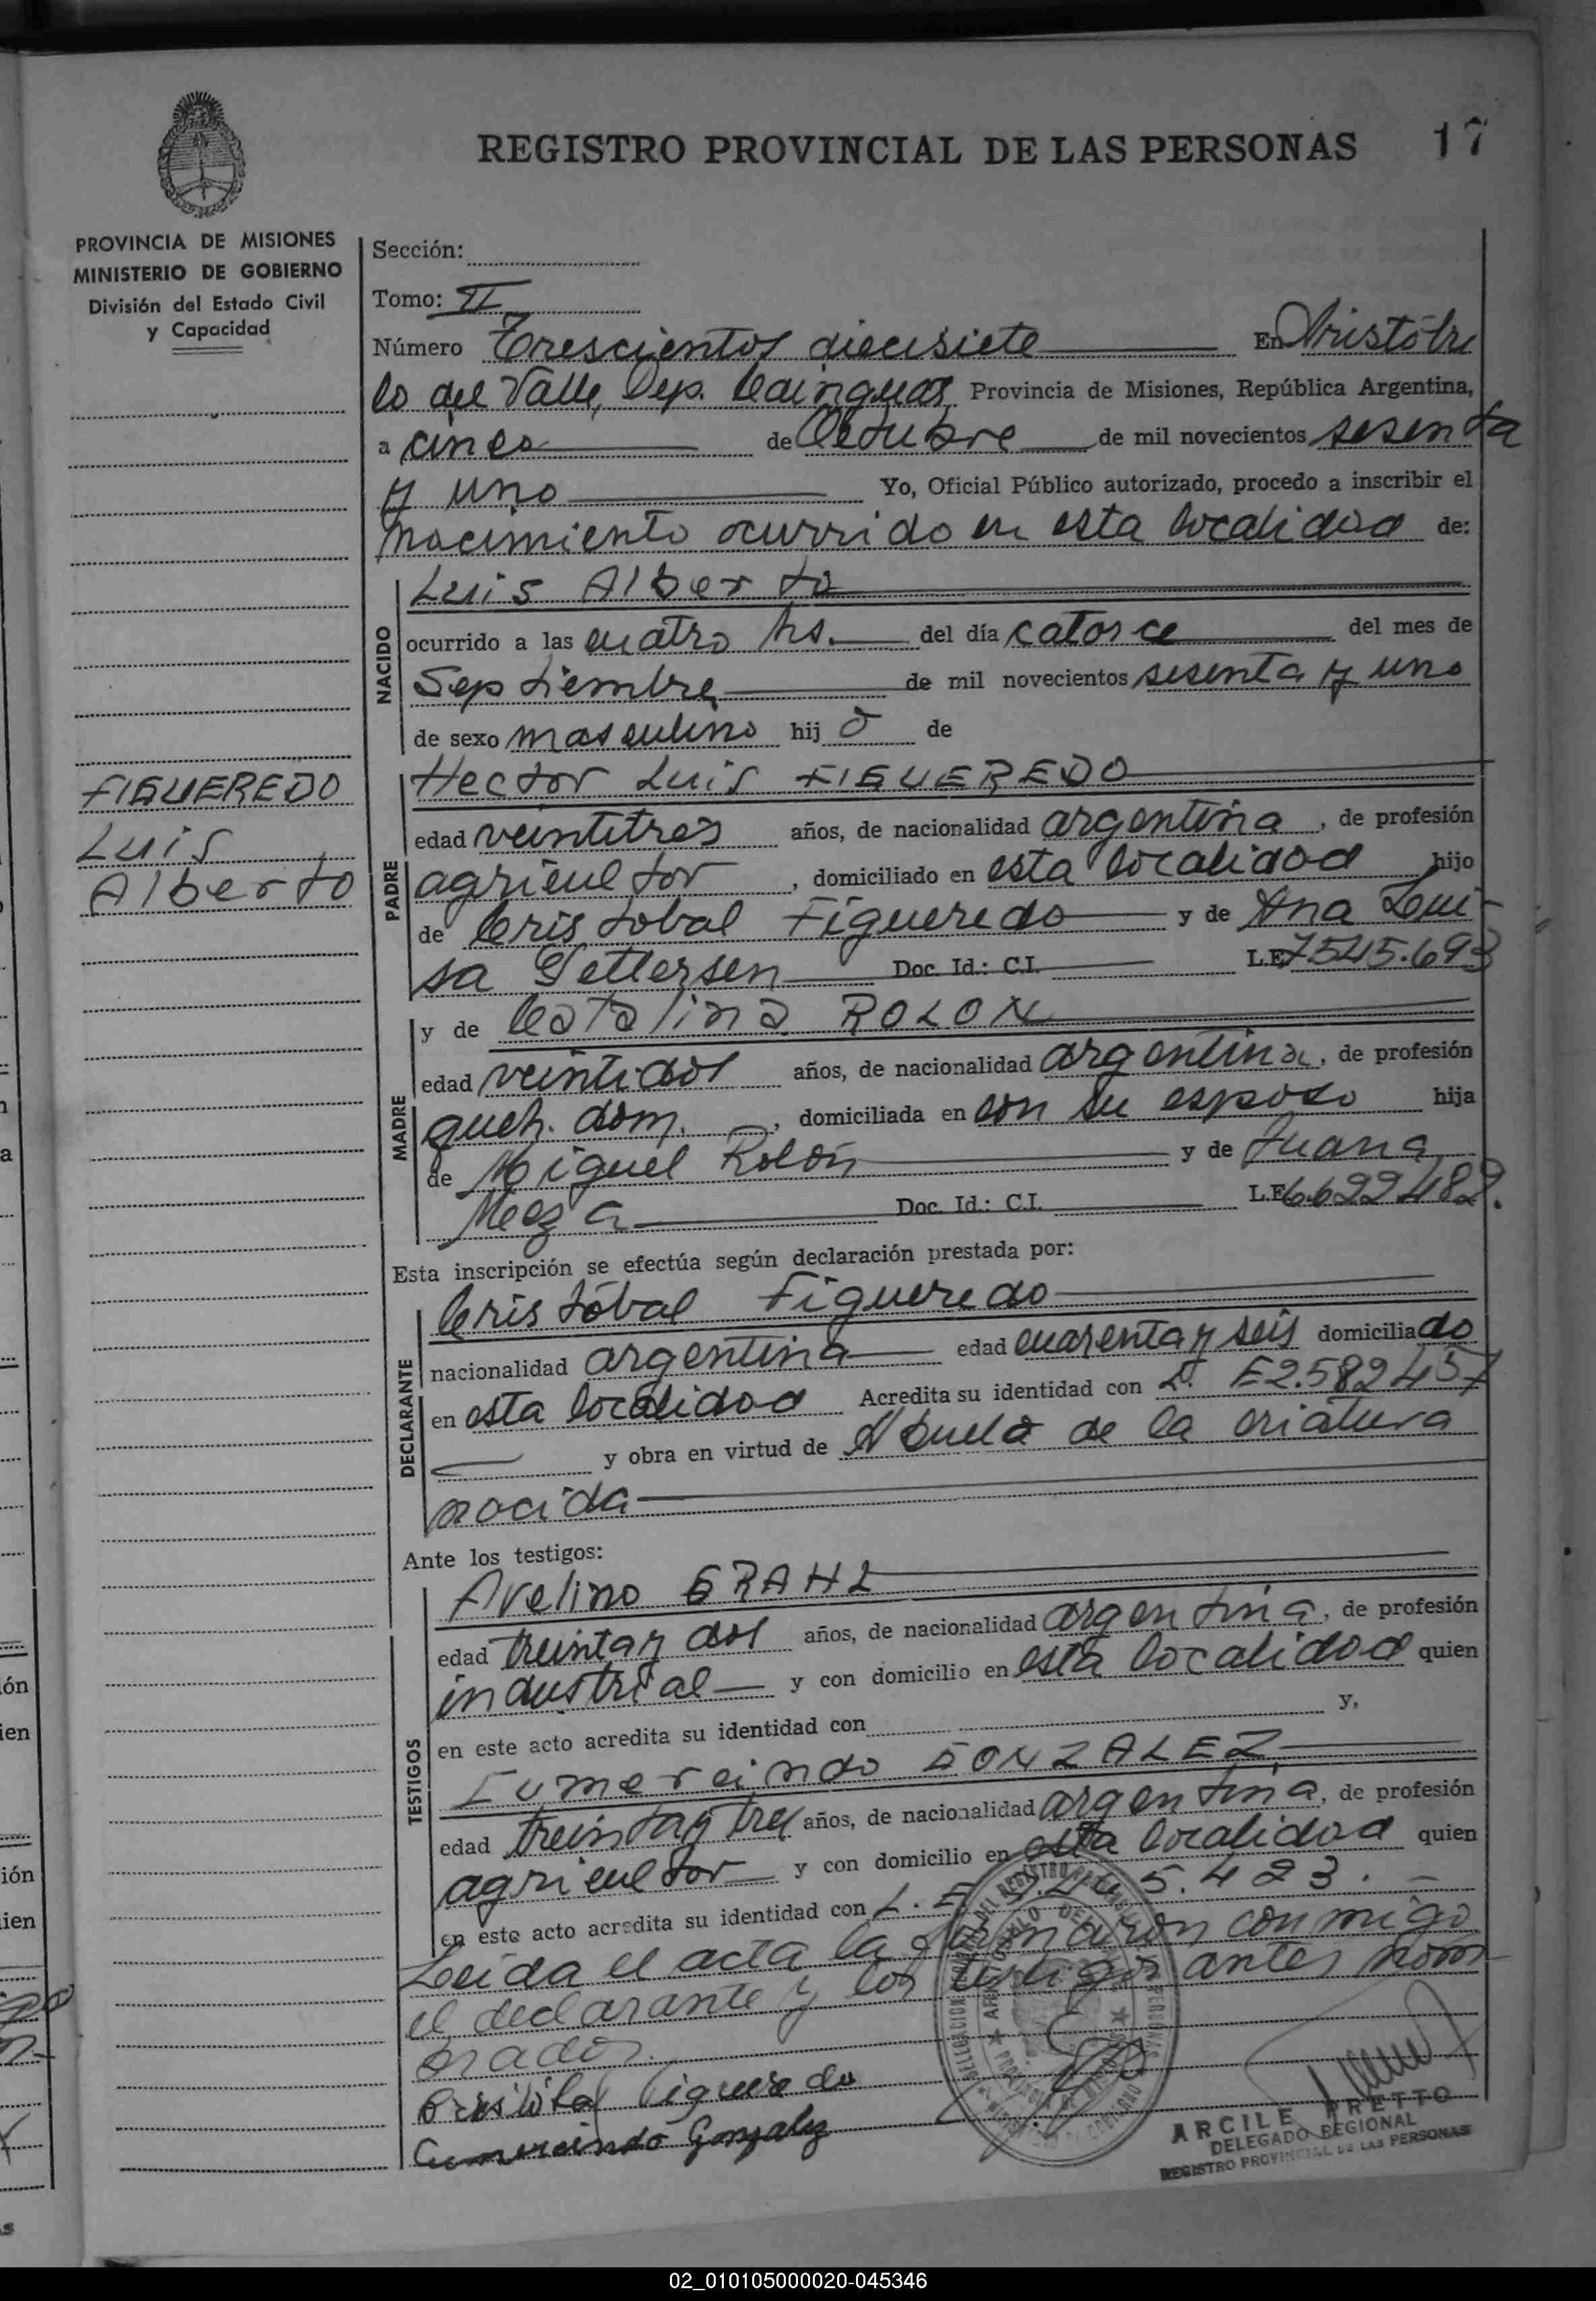 REGISTRO PROVINCIAL DE LAS PERSONAS 17
PROVINCIA DE MISIONES
MINISTERIO DE GOBIERNO
División del Estado Civil
y Capacidad
FIGUEREDO
Luis
Alberto
Sección:
Tomo: II
Número Trescientos diecisiete En Aristóbu
lo del Valle, Dep. Cainguas Provincia de Misiones, República Argentina,
a cinco de Octubre de mil novecientos sesenta
y uno Yo, Oficial Público autorizado, procedo a inscribir el
nacimiento ocurrido en esta localidad de:
NACIDO
Luis Alberto
ocurrido a las cuatro hs. del día catorce del mes de
Septiembre de mil novecientos sesenta y uno
de sexo masculino hij o de
PADRE
Hector Luis FIGUEREDO
edad veintitres años, de nacionalidad argentina, de profesión
agricultor, domiciliado en esta localidad hijo
de Cristobal Figueredo y de Ana Lui-
sa Doc. Id.: C.I. L.E. 7545.693
MADRE
y de Catalina ROLON
edad veintidos años, de nacionalidad argentina, de profesión
queh. dom., domiciliada en con su esposo hija
de Miguel Rolón y de Juana
Meza Doc. Id.: C.I. L.E. 6.699482.
Esta inscripción se efectúa según declaración prestada por:
DECLARANTE
Cristóbal Figueredo
nacionalidad argentina edad cuarenta y seis domiciliado
en esta localidad Acredita su identidad con L. E 2.582457
y obra en virtud de Abuelo de la criatura
nacida
Ante los testigos:
TESTIGOS
Avelino GRAHL
edad treinta y dos años, de nacionalidad argentina, de profesión
industrial y con domicilio en esta localidad quien
en este acto acredita su identidad con y,
Gumercindo GONZALEZ
edad treinta y tres años, de nacionalidad argentina, de profesión
agricultor y con domicilio en esta localidad quien
en este acto acredita su identidad con L. E 5.423.
Leida el acta la firmaron conmigo
el declarante y los testigos antes nom
brados.
Cristóbal Figueredo
Gumercindo Gonzalez
ARCILE PRETTO
DELEGADO REGIONAL
REGISTRO PROVINCIAL DE LAS PERSONAS
02_010105000020-045346